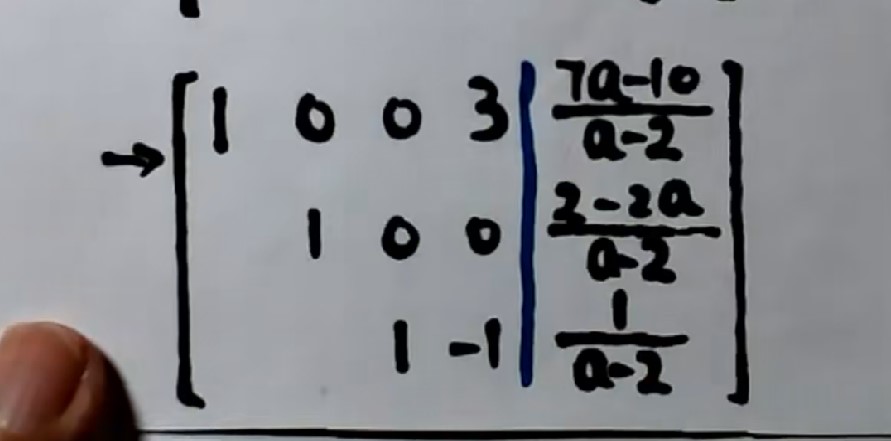 → [ 1 0 0 3 | (7a-10)/(a-2) ]
[ 1 0 0 | (2-2a)/(a-2) ]
[ 1 -1 | 1/(a-2) ]